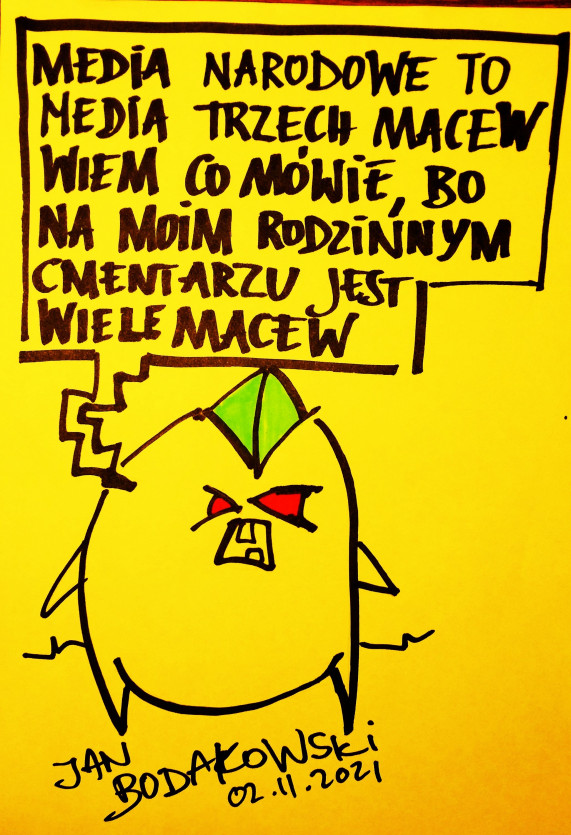 MEDIA NARODOWE TO
MEDIA TRZECH MACEW
WIEM CO MÓWIĘ, BO
NA MOIM RODZINNYM
CMENTARZU JEST
WIELE MACEW
JAN
BODAKOWSKI
02.11.2021